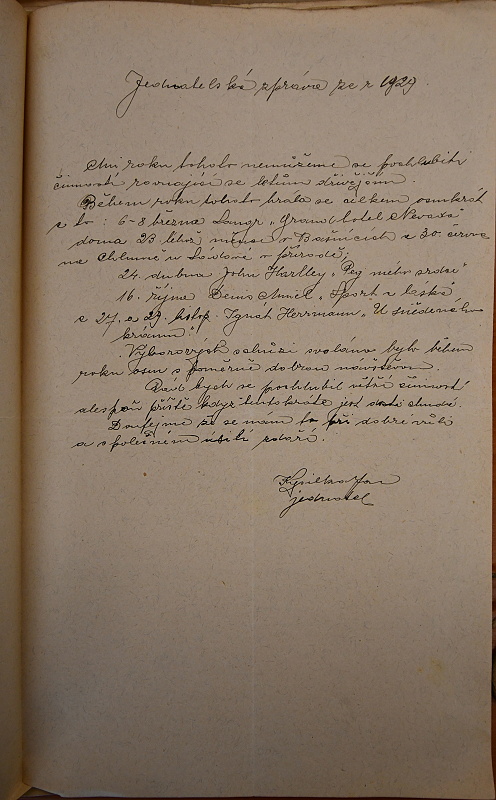 Jednatelská zpráva za r 1929
Ani roku tohoto nemůžeme se pochlubiti
činností rovnající se letům dřívějším.
Během roku tohoto hrálo se celkem osmkrát
a to: 6-8 března Langr „Grand hotel Nevada"
doma 23. téhož měsíce v Bašnicích a 30. června
na Chlumě u v přírodě,
24. dubna John Hartley „Peg mého srdce"
16. října Denis Amiel „Sport a láska"
a 27. a 29. listop. Ignát Herrmann „U snědeného
krámu".
Výborových schůzí svoláno bylo během
roku osm s poměrně dobrou návštěvou.
Rád bych se pochlubil větší činností
alespoň příště když tentokráte jest dosti chudá.
Doufejme že se nám to při dobré vůli
a společném úsilí zdaří.
Jan
jednatel